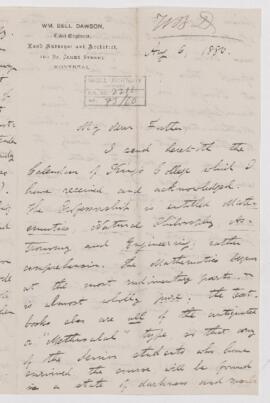 WM. BELL DAWSON,
Civil Engineer,
Land Surveyor and Architect,
St. James Street,
MONTREAL.
WBD
Aug 6, 1880.
My dear Father,
I send herewith the
Calendar of King's College which I
have received and acknowledged.
The Professorship is entitled Math-
ematics, Natural Philosophy, As-
tronomy and Engineering, rather
comprehensive. The Mathematics begins
at the most rudimentary parts &
is almost wholly pure; the text-
books also are all of the antiquated
"Methuselah" type, so that any
of the Senior students who have
survived the course will be found
in a state of darkness and